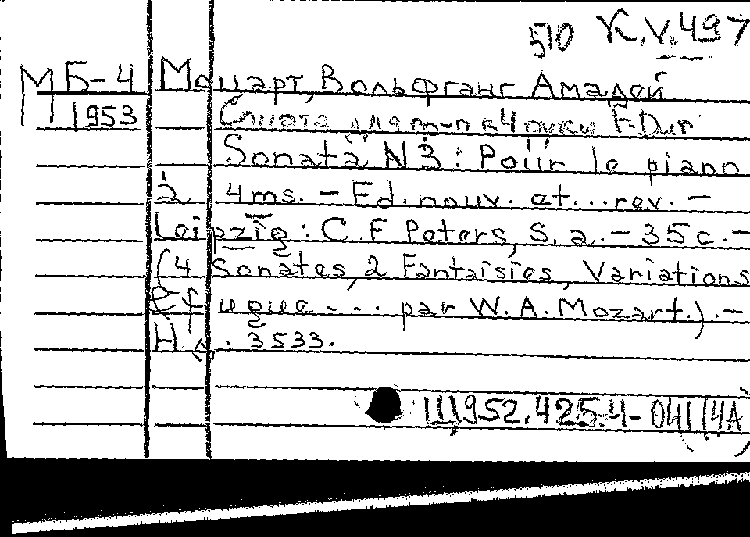 510 K.V.497
М Б-4 Моцарт, Вольфганг Амадей
1953 Соната для ф-п в 4 руки F-Dur
Sonata N 3 : Pour le piano
à 4 ms. – Ed. nouv. et ... rev. –
Leipzig : C. F. Peters, S. a. – 35 c. –
(4 Sonates, 2 Fantaisies, Variations
et fugue ... par W. A. Mozart.). –
Н. д. 3533.
952.425.4-04